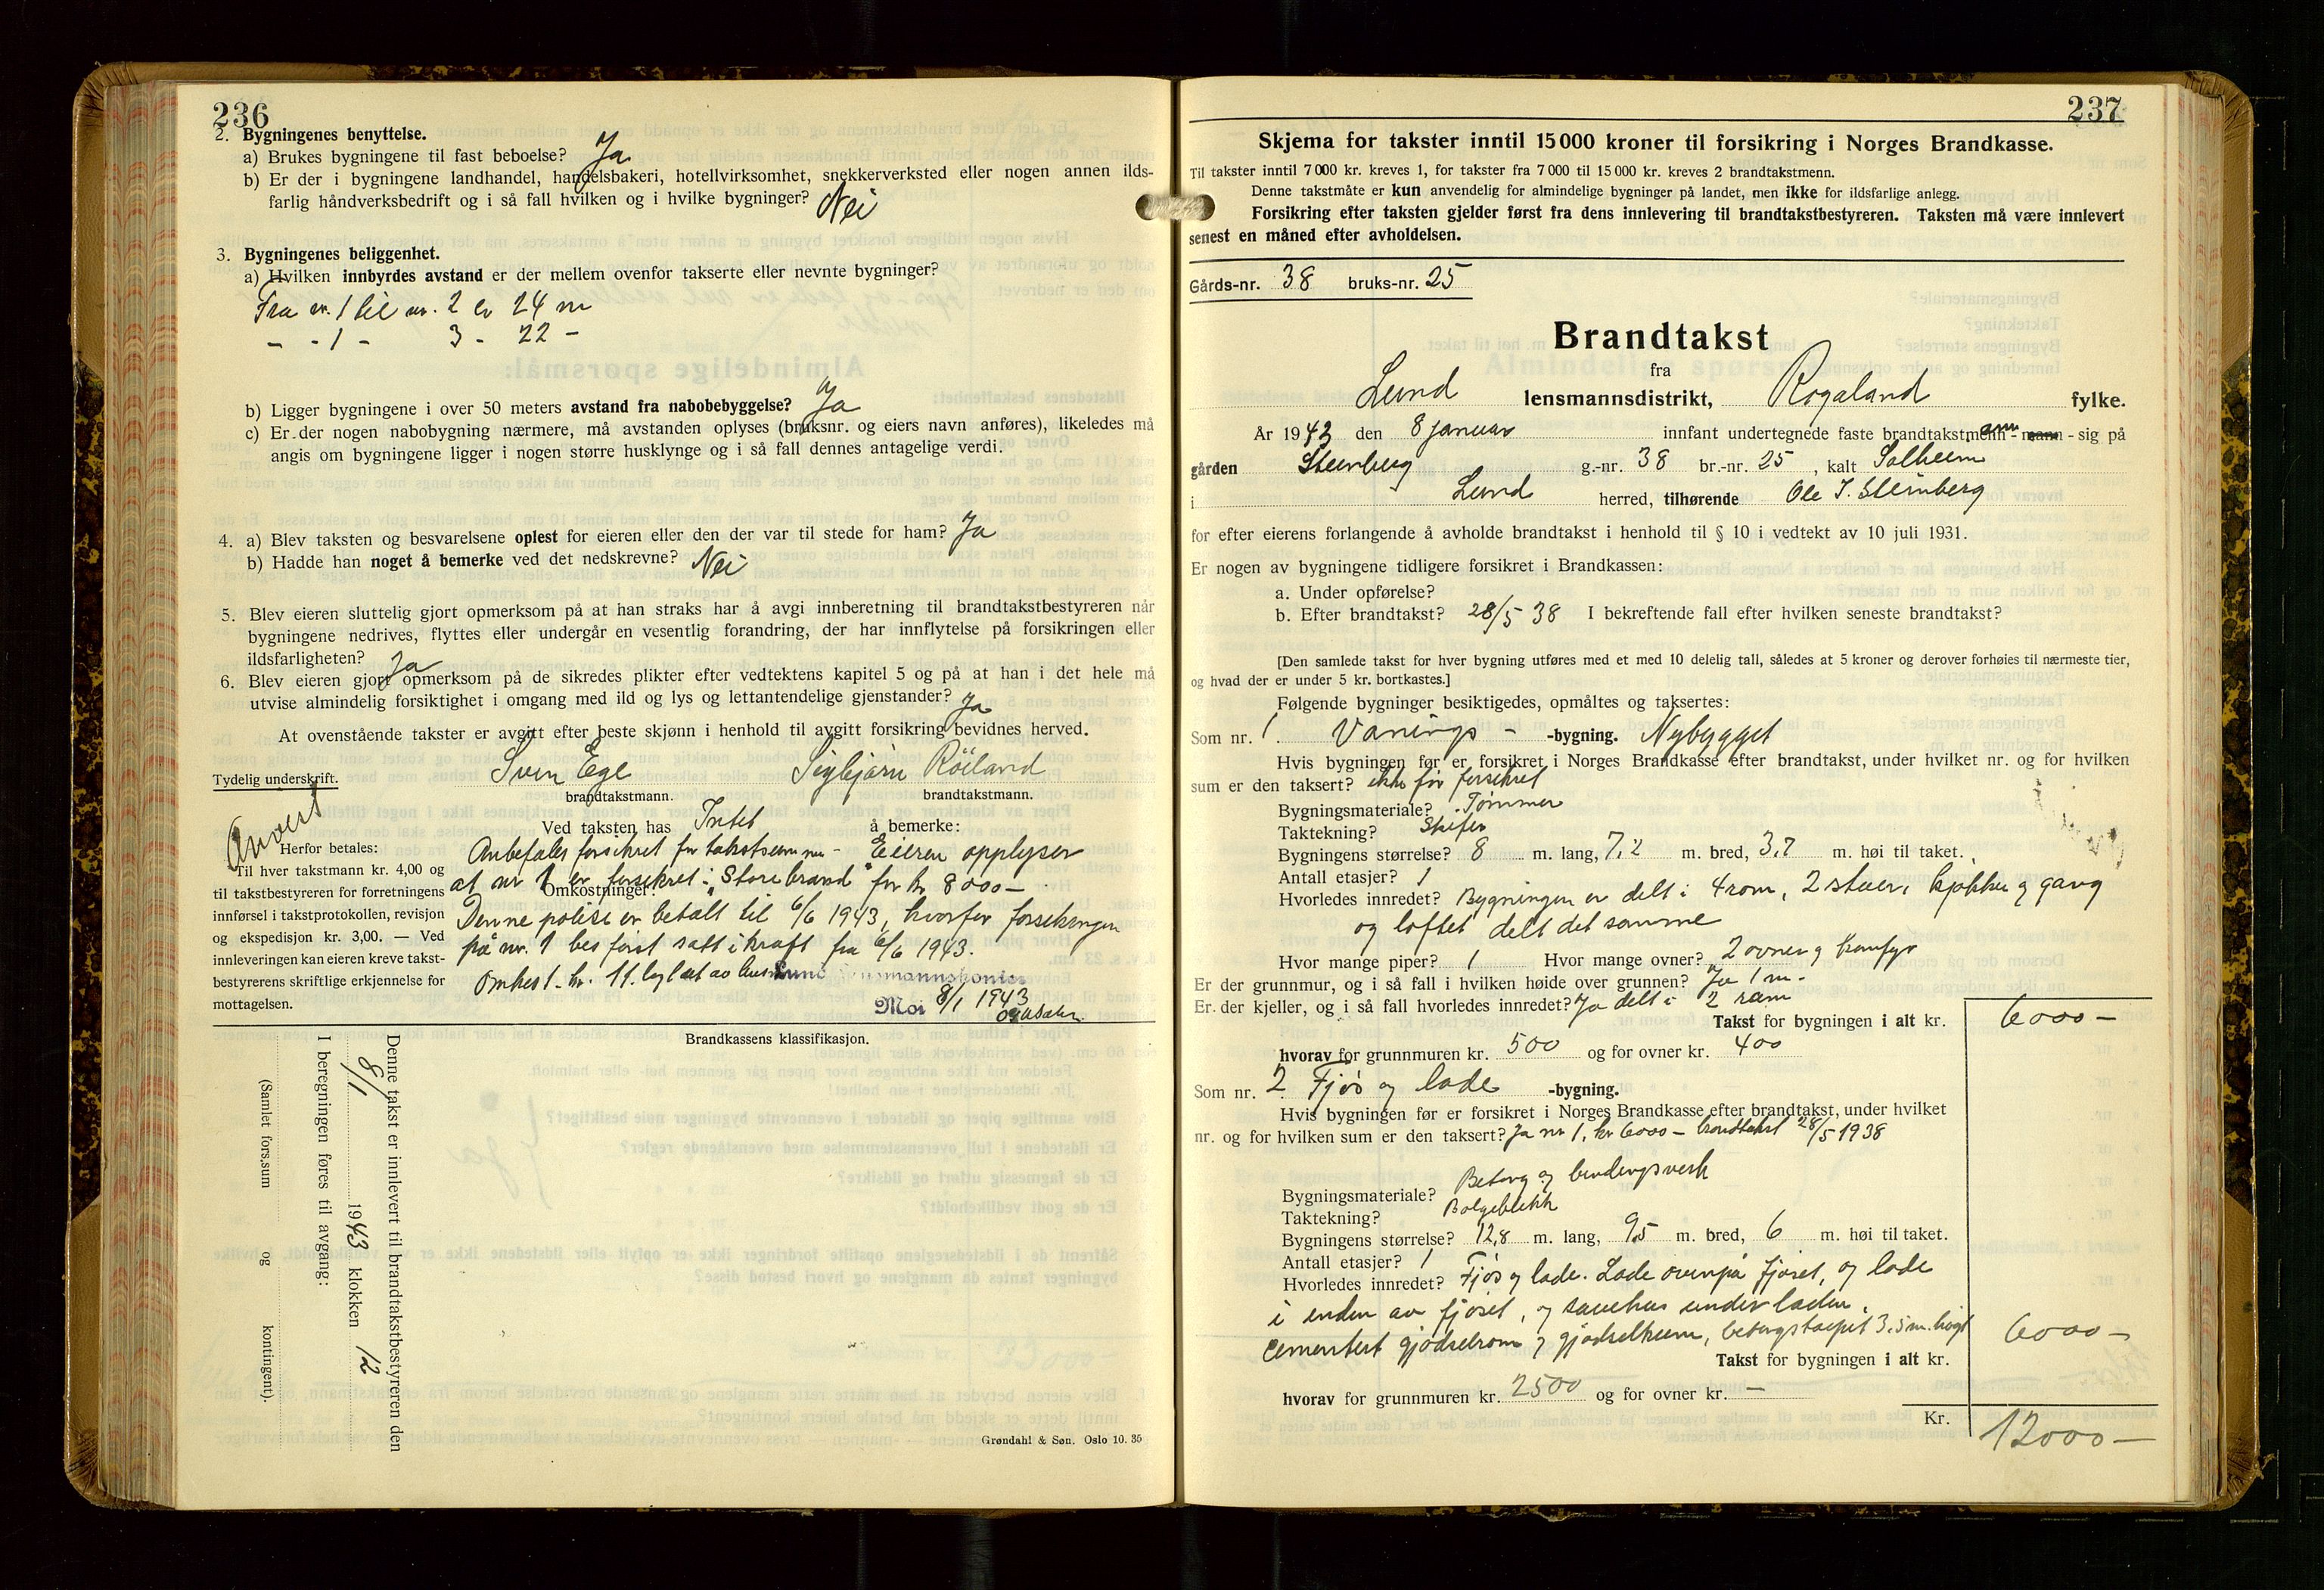 236
2. Bygningenes benyttelse.
a) Brukes bygningene til fast beboelse? Ja
b) Er der i bygningene landhandel, handelsbakeri, hotellvirksomhet, snekkerverksted eller nogen annen ilds-
farlig håndverksbedrift og i så fall hvilken og i hvilke bygninger? Nei
3. Bygningenes beliggenhet.
a) Hvilken innbyrdes avstand er der mellem ovenfor takserte eller nevnte bygninger?
Fra nr. 1 til nr. 2 er 24 m
- - 1 - 3 - 22 -
b) Ligger bygningene i over 50 meters avstand fra nabobebyggelse? Ja
c) Er der nogen nabobygning nærmere, må avstanden oplyses (bruksnr. og eiers navn anføres), likeledes må
angis om bygningene ligger i nogen større husklynge og i så fall dennes antagelige verdi.
4. a) Blev taksten og besvarelsene oplest for eieren eller den der var til stede for ham? Ja
b) Hadde han noget å bemerke ved det nedskrevne? Nei
5. Blev eieren sluttelig gjort opmerksom på at han straks har å avgi innberetning til brandtakstbestyreren når
bygningene nedrives, flyttes eller undergår en vesentlig forandring, der har innflytelse på forsikringen eller
ildsfarligheten? Ja
6. Blev eieren gjort opmerksom på de sikredes plikter efter vedtektens kapitel 5 og på at han i det hele må
utvise almindelig forsiktighet i omgang med ild og lys og lettantendelige gjenstander? Ja
At ovenstående takster er avgitt efter beste skjønn i henhold til avgitt forsikring bevidnes herved.
Tydelig underskrift. Sven Ege Sigbjørn Röiland
brandtakstmann. brandtakstmann.
Ved taksten has Intet å bemerke:
Herfor betales:
Til hver takstmann kr. 4,00 og
til takstbestyreren for forretningens
innførsel i takstprotokollen, revisjon
og ekspedisjon kr. 3,00. — Ved
innleveringen kan eieren kreve takst-
bestyrerens skriftlige erkjennelse for
mottagelsen.
Anbefales forsikret for takstsummen - Eieren opplyser
at nr 1 er forsikret i "Storebrand" for kr 8000 -
Omkostninger:
Denne polise er betalt til 6/6 1943, hvorfor forsikringen
på nr. 1 bes først satt i kraft fra 6/6 1943.
Omkost. kr. 11.
Lund lensmannskontor
Moi 8/1 1943
Brandkassens klassifikasjon.
Denne takst er innlevert til brandtakstbestyreren den
8/1 1943 klokken 12
I beregningen føres til avgang:
(Samlet fors.sum og kontingent).
Grøndahl & Søn. Oslo 10. 35
237
Skjema for takster inntil 15 000 kroner til forsikring i Norges Brandkasse.
Til takster inntil 7 000 kr. kreves 1, for takster fra 7 000 til 15 000 kr. kreves 2 brandtakstmenn.
Denne takstmåte er kun anvendelig for almindelige bygninger på landet, men ikke for ildsfarlige anlegg.
Forsikring efter taksten gjelder først fra dens innlevering til brandtakstbestyreren. Taksten må være innlevert
senest en måned efter avholdelsen.
Gårds-nr. 38 bruks-nr. 25
Brandtakst
fra
Lund lensmannsdistrikt, Rogaland fylke.
År 1943 den 8 januar innfant undertegnede faste brandtakstmenn - mann - sig på
gården Steinberg g.-nr. 38 br.-nr. 25, kalt Solheim
i Lund herred, tilhørende Ole J. Steinberg
for efter eierens forlangende å avholde brandtakst i henhold til § 10 i vedtekt av 10 juli 1931.
Er nogen av bygningene tidligere forsikret i Brandkassen:
a. Under opførelse?
b. Efter brandtakst? 28/5 38 I bekreftende fall efter hvilken seneste brandtakst?
[Den samlede takst for hver bygning utføres med et med 10 delelig tall, således at 5 kroner og derover forhøies til nærmeste tier,
og hvad der er under 5 kr. bortkastes.]
Følgende bygninger besiktigedes, opmåltes og taksertes:
Som nr. 1 Vånings - -bygning. Nybygget
Hvis bygningen før er forsikret i Norges Brandkasse efter brandtakst, under hvilket nr. og for hvilken
sum er den taksert? ikke før forsikret
Bygningsmateriale? Tømmer
Taktekning? Skifer
Bygningens størrelse? 8 m. lang, 7,2 m. bred, 3,7 m. høi til taket.
Antall etasjer? 1
Hvorledes innredet? Bygningen er delt i 4 rom, 2 stuer, kjøkken og gang
og loftet delt det samme
Hvor mange piper? 1 Hvor mange ovner? 2 ovner og komfyr
Er der grunnmur, og i så fall i hvilken høide over grunnen? Ja 1 m.
Er der kjeller, og i så fall hvorledes innredet? Ja delt i 2 rom
Takst for bygningen i alt kr. 6000 -
hvorav for grunnmuren kr. 500 og for ovner kr. 400
Som nr. 2 Fjøs og lade -bygning.
Hvis bygningen før er forsikret i Norges Brandkasse efter brandtakst, under hvilket
nr. og for hvilken sum er den taksert? Ja nr 1, kr 6000 - brandtakst 28/5 1938
Bygningsmateriale? Betong og bindingsverk
Taktekning? Bølgeblikk
Bygningens størrelse? 12,8 m. lang, 9,5 m. bred, 6 m. høi til taket.
Antall etasjer? 1
Hvorledes innredet? Fjøs og lade. Lade ovenpå fjøset, og lade
i enden av fjøset, og sauehus under laden.
Cementert gjødselrom og gjødselkum, betongstøpt 3,5 m. høgt
Takst for bygningen i alt kr. 6000 -
hvorav for grunnmuren kr. 2500 og for ovner kr. -
Kr. 12000 -